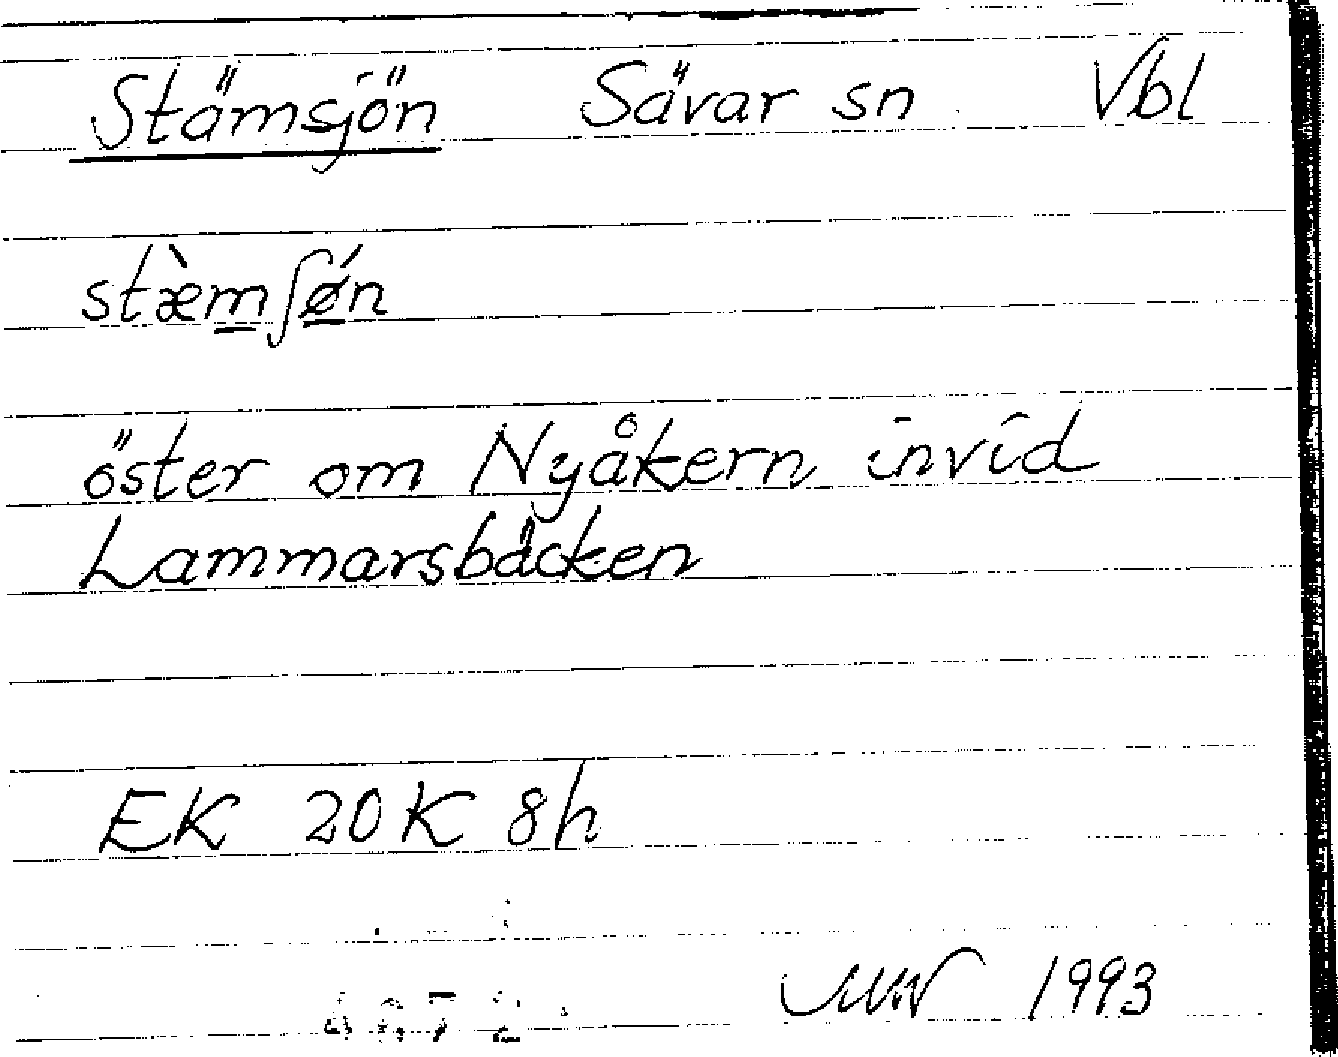 Stämsjön Sävar sn Vbl
stæ̀m̲ʃǿ̲n
öster om Nyåkern invid
Lammarsbäcken
EK 20K 8h
1993